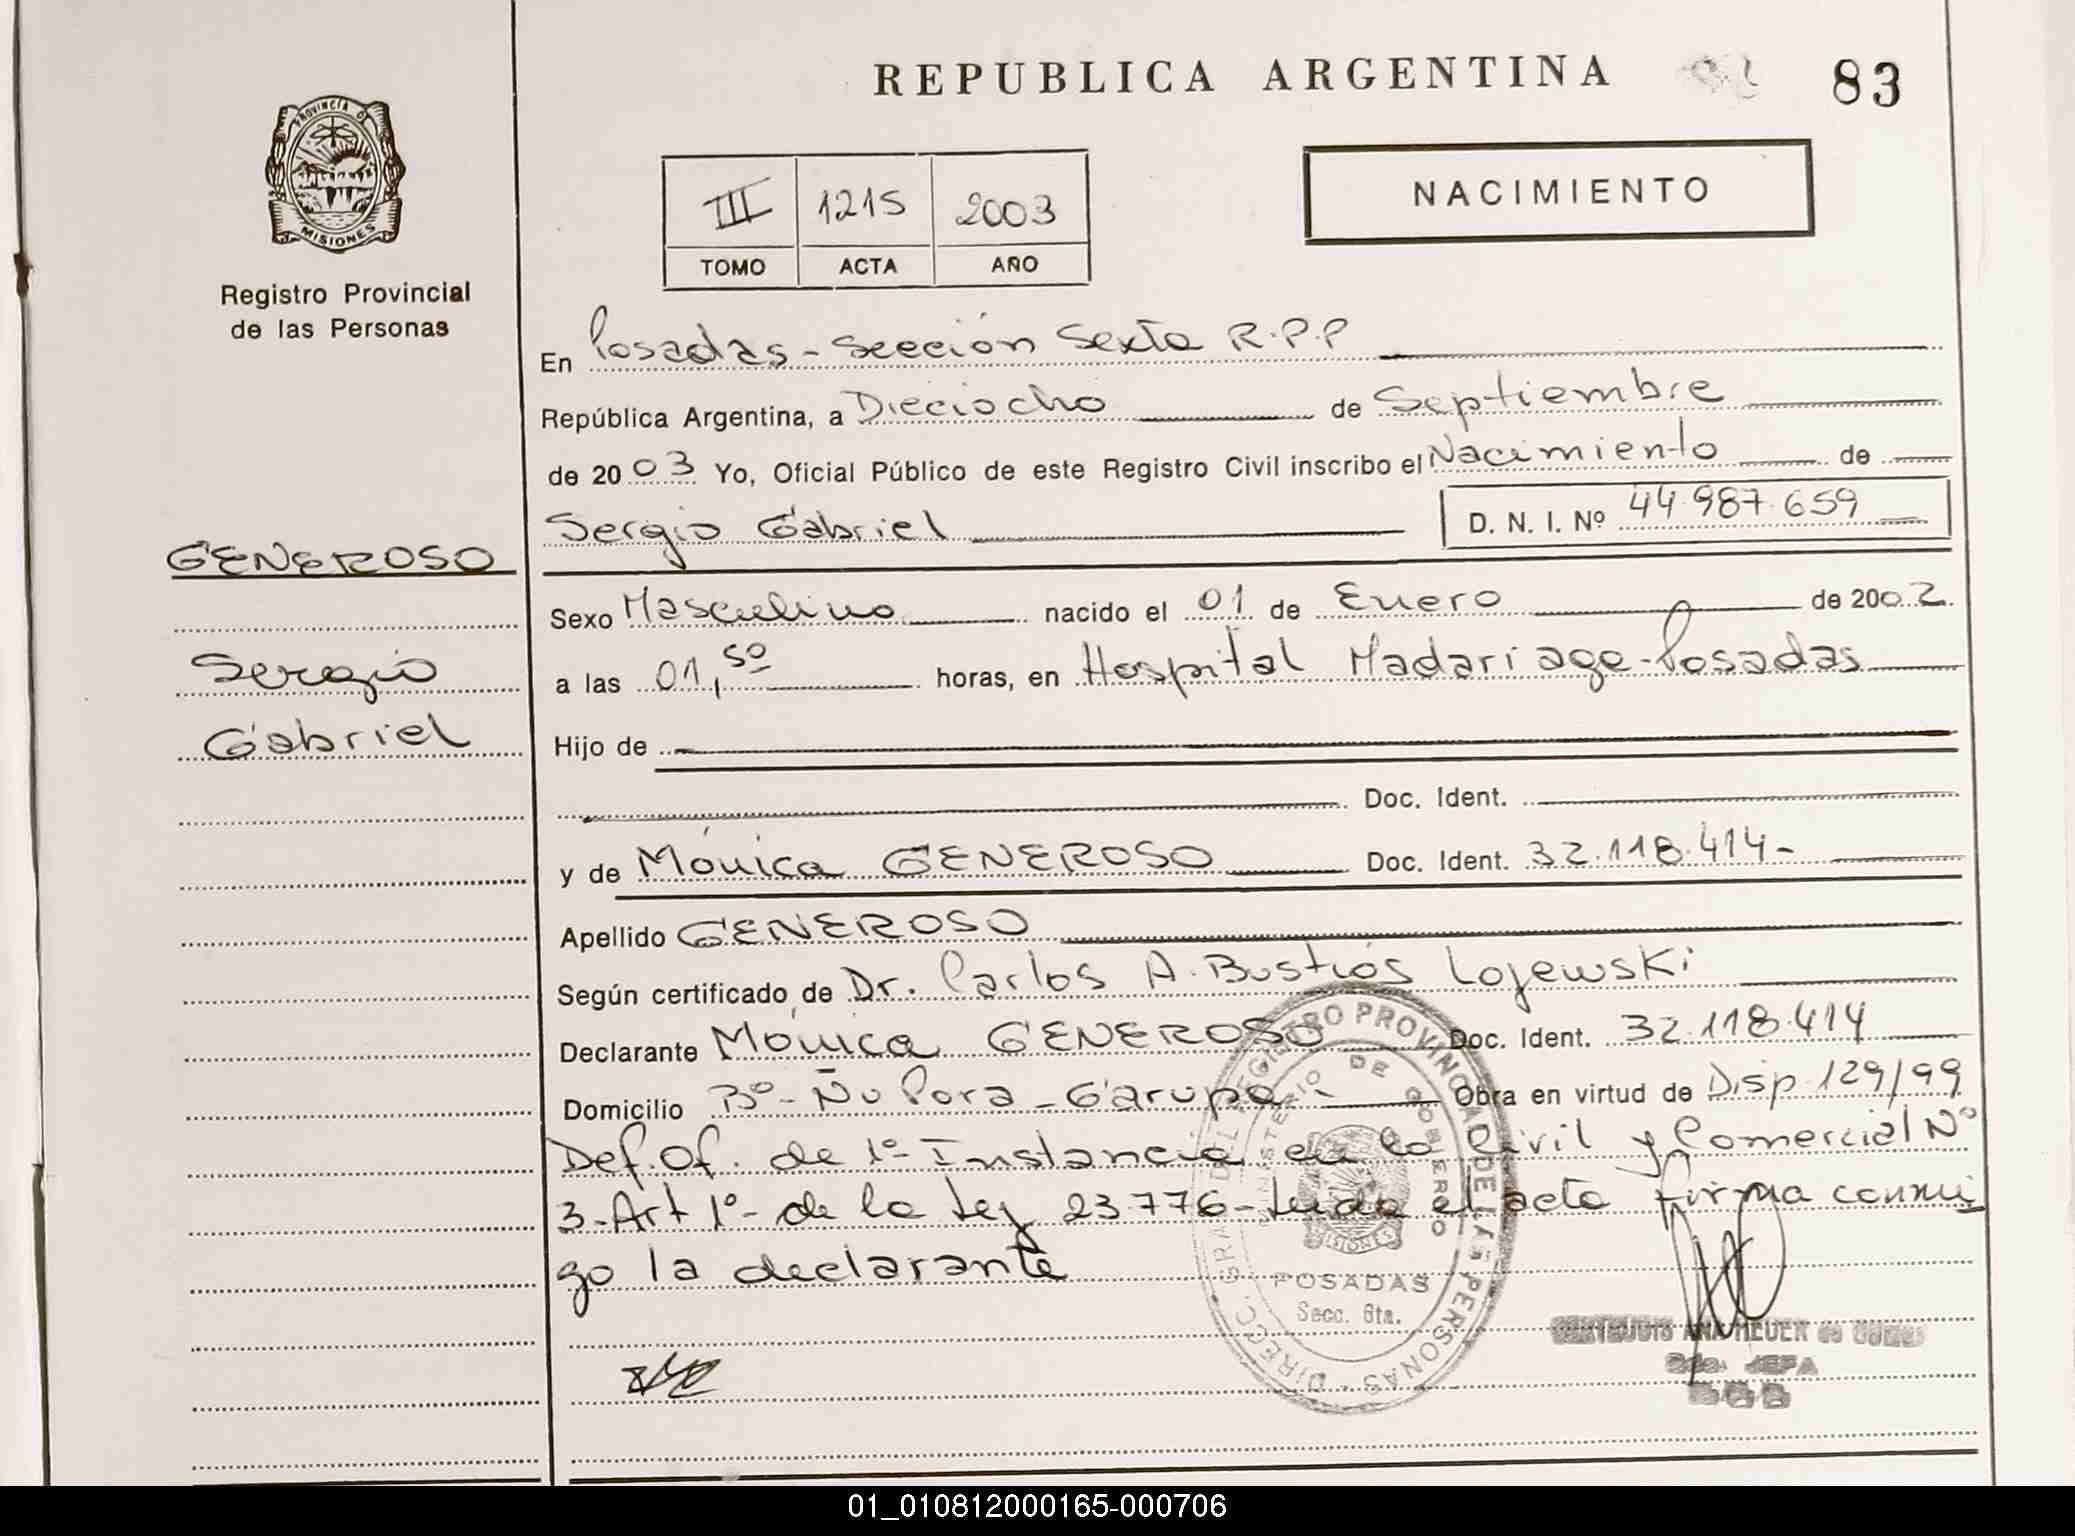 REPUBLICA ARGENTINA 83
PROVINCIA DE
MISIONES
Registro Provincial
de las Personas
III 1215 2003
TOMO ACTA AÑO
NACIMIENTO
En Posadas - Sección Sexta R.P.P
República Argentina, a Dieciocho de Septiembre
de 2003 Yo, Oficial Público de este Registro Civil inscribo el Nacimiento de
Sergio Gabriel D. N. I. Nº 44.987.659
GENEROSO
Sergio
Gabriel
Sexo Masculino nacido el 01 de Enero de 2002
a las 01,50 horas, en Hospital Madariaga - Posadas
Hijo de
y Doc. Ident.
y de Mónica GENEROSO Doc. Ident. 32.118.414-
Apellido GENEROSO
Según certificado de Dr. Carlos A. Bustios Lojewski
Declarante Mónica GENEROSO Doc. Ident. 32.118.414
Domicilio Bº- Ñu Pora - Garupa - Obra en virtud de Disp. 129/99
Def. Of. de 1º Instancia en lo Civil y Comercial Nº
3 - Art 1º - de la Ley 23.776 - Leida el acta firma conmi
go la declarante
DIRECC. GRAL DEL REGISTRO PROVINCIAL DE LAS PERSONAS
MINISTERIO DE GOBIERNO
MISIONES
POSADAS
Secc. 6ta.
GERTRUDIS ANA HEUER de
JEFA
01_010812000165-000706